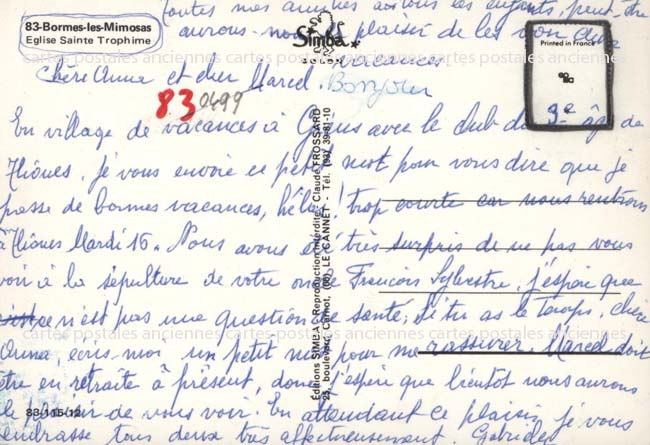 toutes mes amitiés à tous les enfants, peut-être
aurons-nous le plaisir de les voir aux
vacances
83-Bormes-les-Mimosas
Eglise Sainte Trophime
Simba
Printed in France
cartes postales anciennes cartes postales anciennes cartes postales anciennes
Chère Anna et cher Marcel. Bonjour
830499
3e
En village de vacances à Giens avec le club du 3e âge de
Hières, je vous envoie ce petit mot pour vous dire que je
passe de bonnes vacances, hélas! trop courte car nous rentrons
à Hières Mardi 16. Nous avons été très surpris de ne pas vous
voir à la sépulture de votre oncle François Sylvestre, j'espère que
ce n'est pas une question de santé; si tu as le temps, chère
cartes postales anciennes cartes postales anciennes cartes postales anciennes
Anna, écris-moi un petit mot pour me rassurer Marcel doit
être en retraite à présent, donc j'espère que bientôt nous aurons
le plaisir de vous voir. En attendant ce plaisir, je vous
embrasse tous deux très affectueusement. Gabriel
83-115-12
Éditions SIMBA - Reproduction interdite. Claude FROSSARD
23, boulevard Carnot, (06) LE CANNET - Tél. (93) 39-81-10